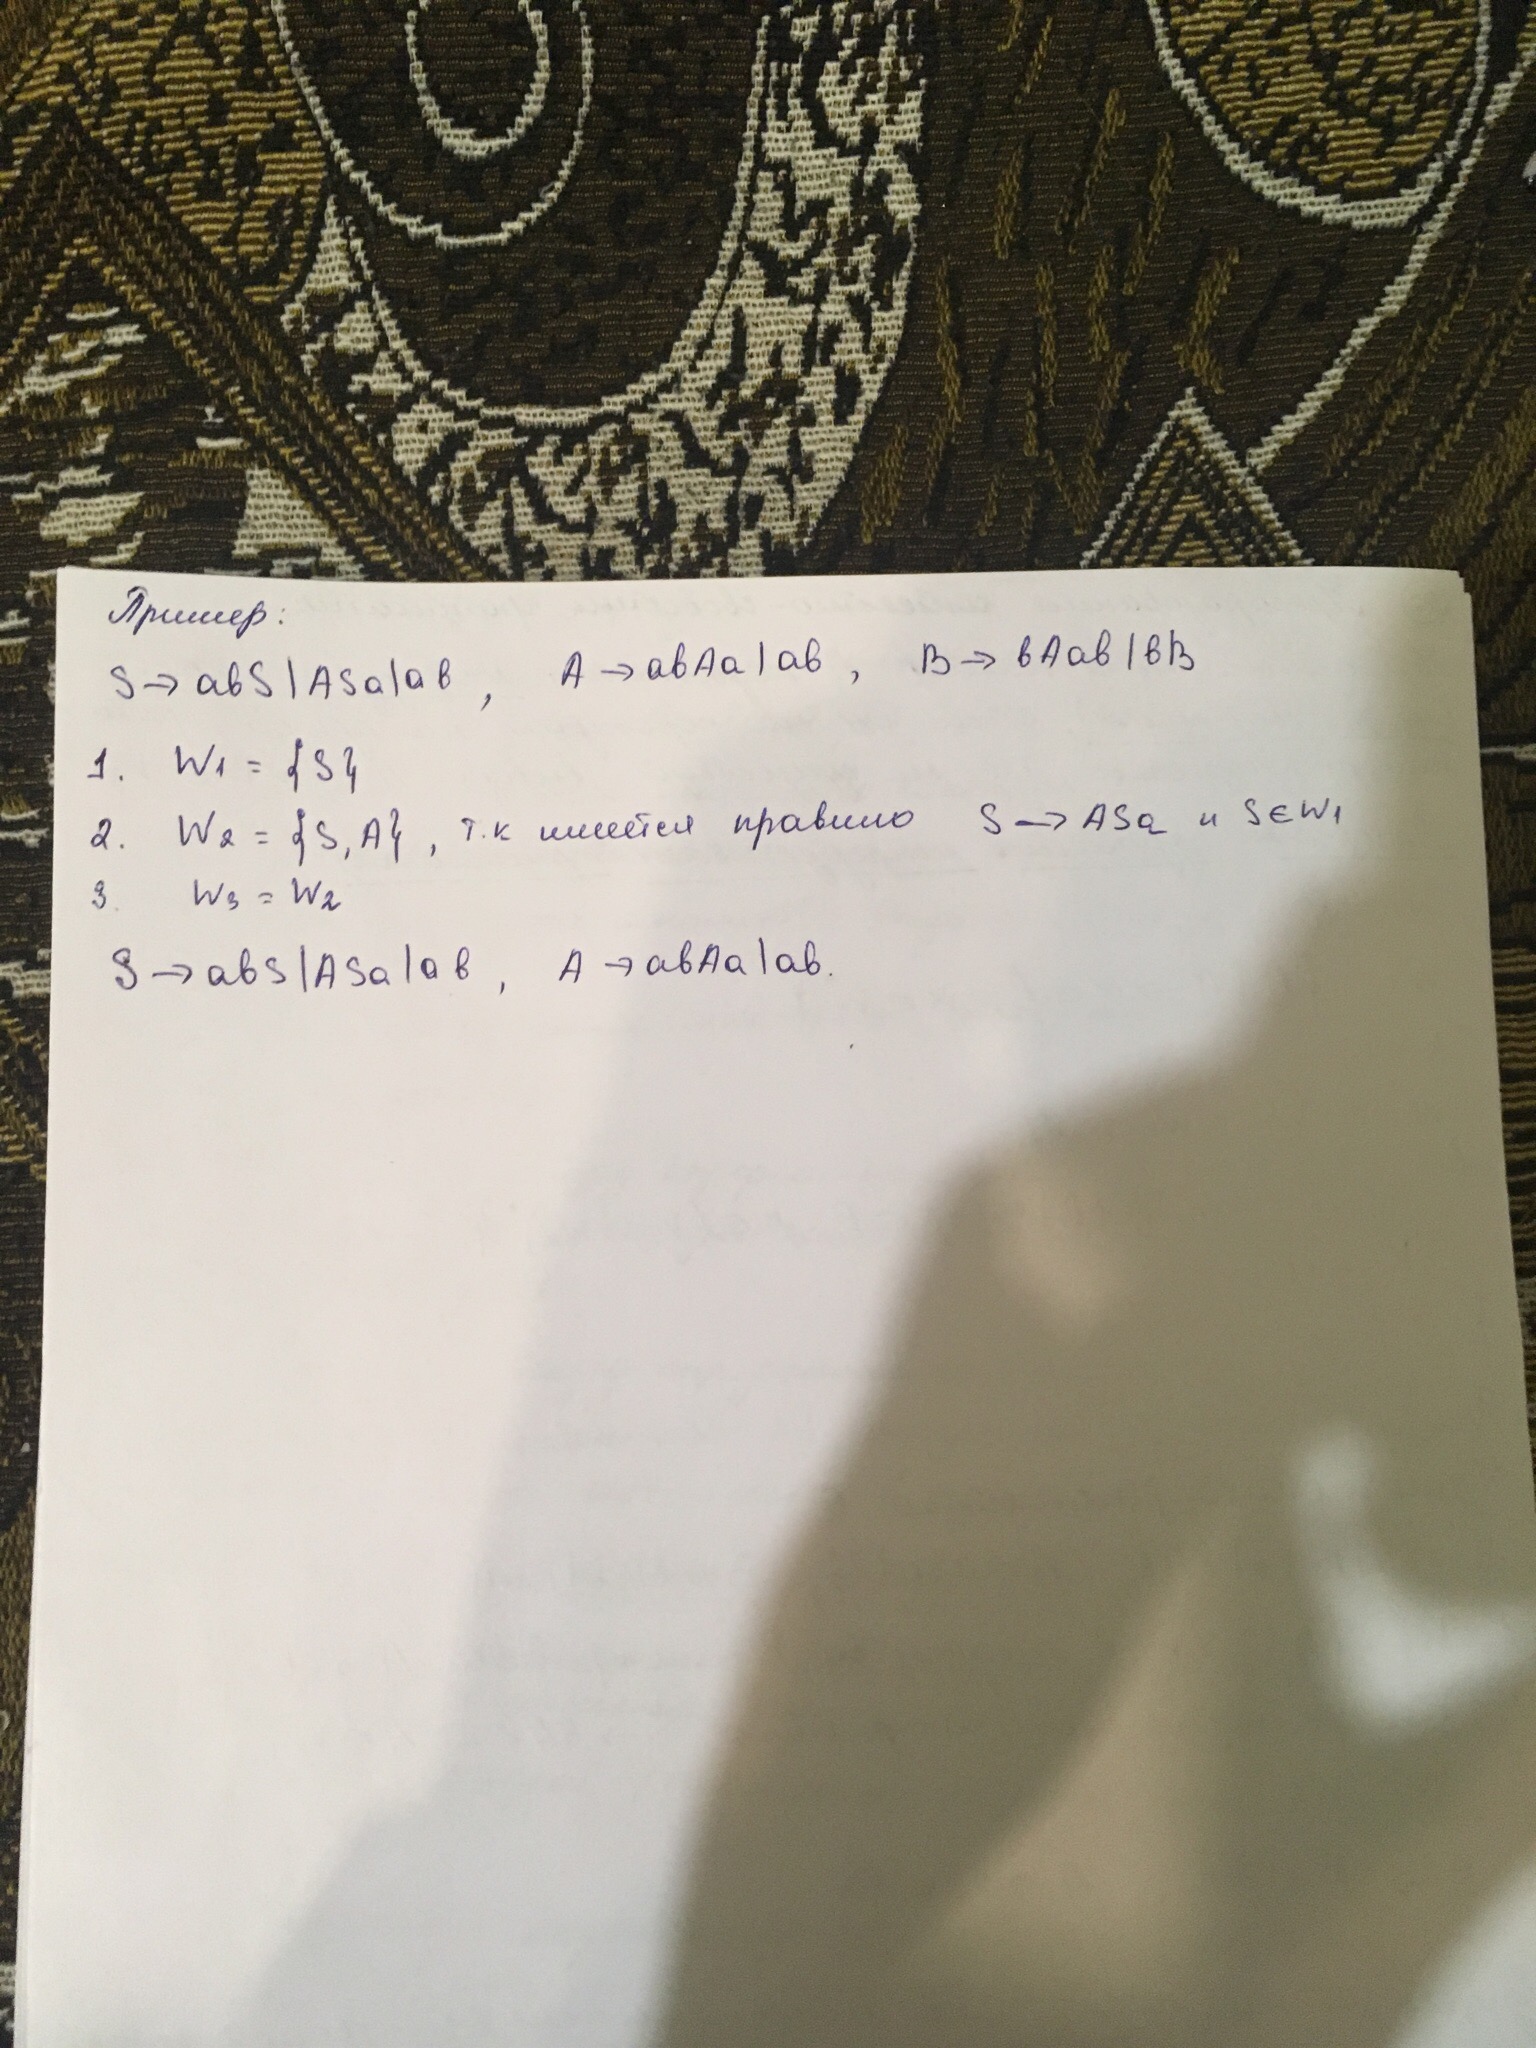 Пример:
S → abS | ASa | ab , A → abAa | ab , B → bAab | bB
1. W1 = {S}
2. W2 = {S, A} , т.к имеется правило S → ASa и S ∈ W1
3. W3 = W2
S → abS | ASa | ab , A → abAa | ab.